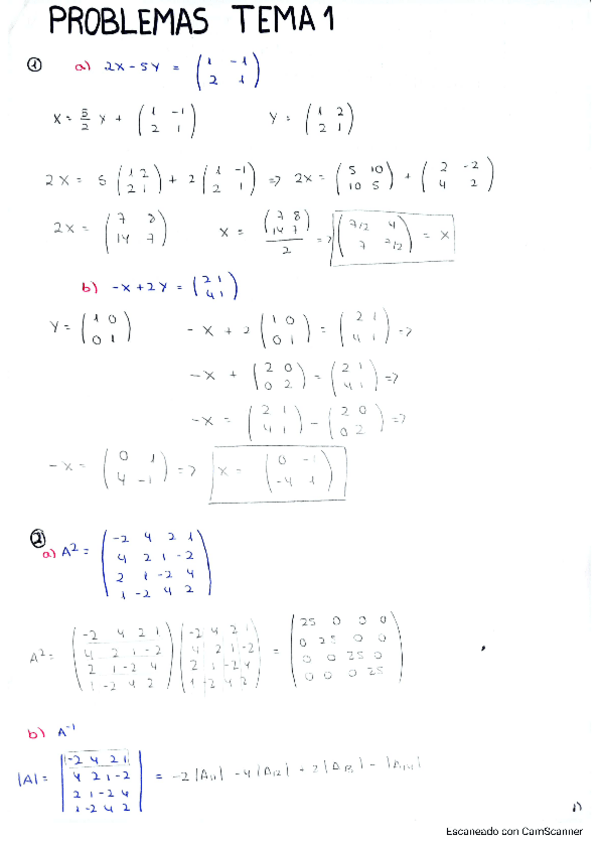 PROBLEMAS TEMA 1
① a) 2X - 5Y = (1 -1
2 1)
X = 5/2 Y + (1 -1
2 1) Y = (1 2
2 1)
2X = 5 (1 2
2 1) + 2 (1 -1
2 1) => 2X = (5 10
10 5) + (2 -2
4 2)
2X = (7 8
14 7) X = (7 8
14 7)
2 => (7/2 4
7 7/2) = X
b) -X + 2Y = (2 1
4 1)
Y = (1 0
0 1) -X + 2 (1 0
0 1) = (2 1
4 1) =>
-X + (2 0
0 2) = (2 1
4 1) =>
-X = (2 1
4 1) - (2 0
0 2) =>
-X = (0 1
4 -1) => X = (0 -1
-4 1)
② a) A² = (-2 4 2 1
4 2 1 -2
2 1 -2 4
1 -2 4 2)
A² = (-2 4 2 1
4 2 1 -2
2 1 -2 4
1 -2 4 2) (-2 4 2 1
4 2 1 -2
2 1 -2 4
1 -2 4 2) = (25 0 0 0
0 25 0 0
0 0 25 0
0 0 0 25)
b) A⁻¹
|A| = |-2 4 2 1
4 2 1 -2
2 1 -2 4
1 -2 4 2| = -2|A₁₁| - 4|A₁₂| + 2|A₁₃| - |A₁₄|
1)
Escaneado con CamScanner